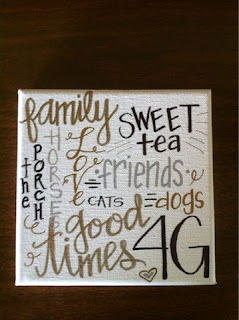 family
SWEET
tea
the
PORCH
HORSE
LOVE
friends
CATS
dogs
good
times
4G